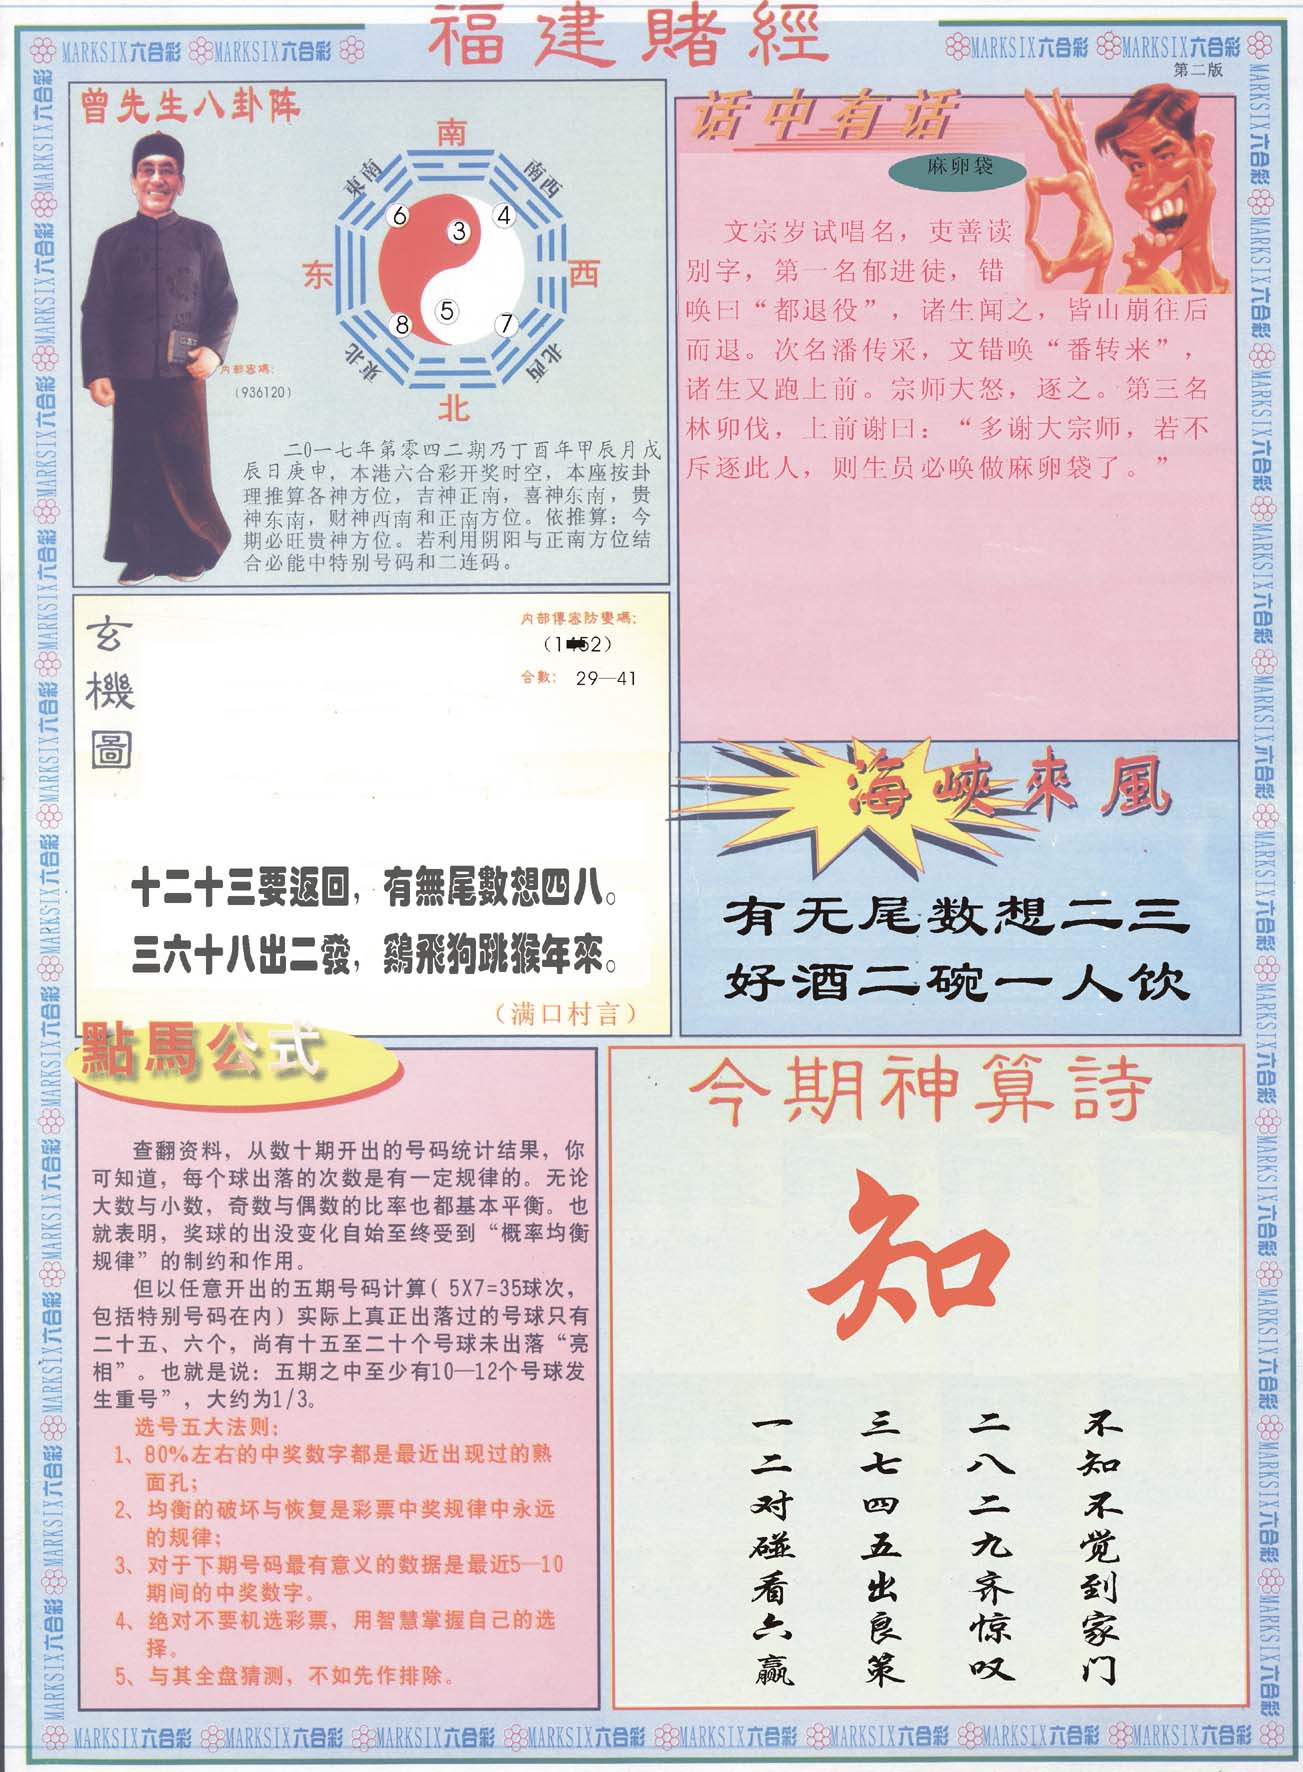 福建賭經
MARKSIX六合彩 MARKSIX六合彩
MARKSIX六合彩 MARKSIX六合彩
第二版
曾先生八卦阵
南
東南
南西
6
3
4
东
西
5
8
7
東北
北西
北
内部密碼：
（936120）
二〇一七年第零四二期乃丁酉年甲辰月戊
辰日庚申，本港六合彩开奖时空，本座按卦
理推算各神方位，吉神正南，喜神东南，贵
神东南，财神西南和正南方位。依推算：今
期必旺贵神方位。若利用阴阳与正南方位结
合必能中特别号码和二连码。
话中有话
麻卵袋
文宗岁试唱名，吏善读
别字，第一名郁进徒，错
唤曰“都退役”，诸生闻之，皆山崩往后
而退。次名潘传采，文错唤“番转来”，
诸生又跑上前。宗师大怒，逐之。第三名
林卯伐，上前谢曰：“多谢大宗师，若不
斥逐此人，则生员必唤做麻卵袋了。”
玄機圖
内部傳密防變碼：
合數：29—41
十二十三要返回，有無尾數想四八。
三六十八出二發，鷄飛狗跳猴年來。
（满口村言）
海峽來風
有无尾数想二三
好酒二碗一人饮
點馬公式
查翻资料，从数十期开出的号码统计结果，你
可知道，每个球出落的次数是有一定规律的。无论
大数与小数，奇数与偶数的比率也都基本平衡。也
就表明，奖球的出没变化自始至终受到“概率均衡
规律”的制约和作用。
但以任意开出的五期号码计算（5X7=35球次，
包括特别号码在内）实际上真正出落过的号球只有
二十五、六个，尚有十五至二十个号球未出落“亮
相”。也就是说：五期之中至少有10—12个号球发
生重号”，大约为1/3。
选号五大法则：
1、80%左右的中奖数字都是最近出现过的熟
面孔；
2、均衡的破坏与恢复是彩票中奖规律中永远
的规律；
3、对于下期号码最有意义的数据是最近5—10
期间的中奖数字。
4、绝对不要机选彩票，用智慧掌握自己的选
择。
5、与其全盘猜测，不如先作排除。
今期神算詩
知
不知不觉到家门
二八二九齐惊叹
三七四五出良策
一二对碰看六赢
MARKSIX六合彩 MARKSIX六合彩 MARKSIX六合彩 MARKSIX六合彩 MARKSIX六合彩 MARKSIX六合彩 MARKSIX六合彩 MARKSIX六合彩